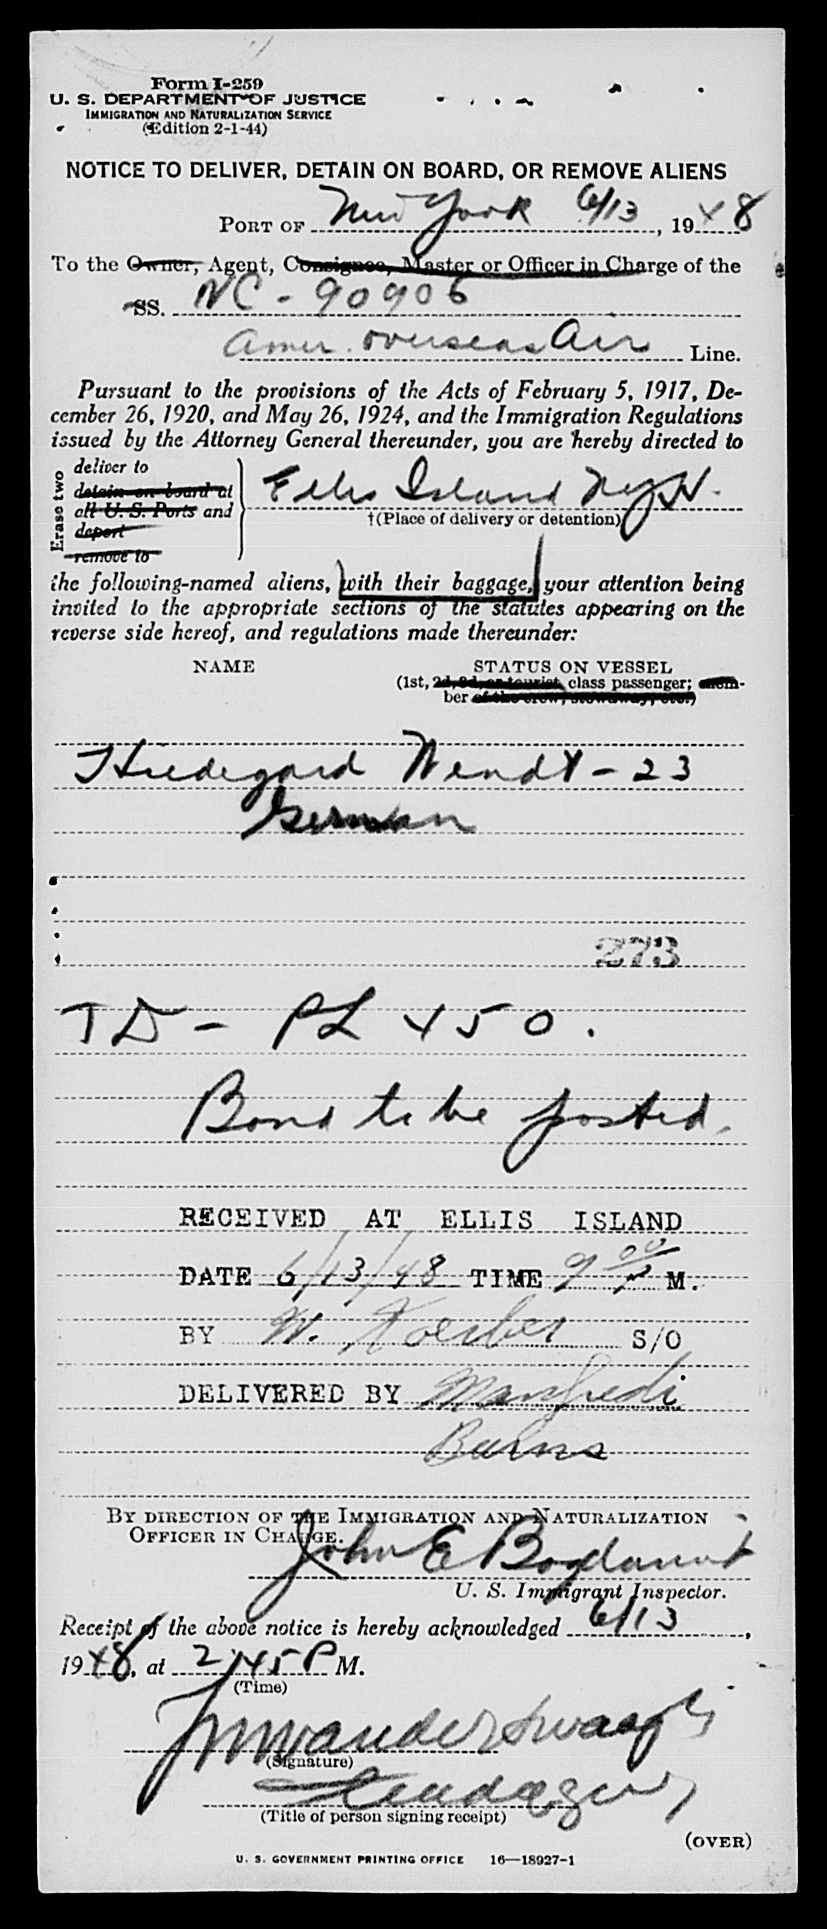 Form I-259
U. S. DEPARTMENT OF JUSTICE
IMMIGRATION AND NATURALIZATION SERVICE
(Edition 2-1-44)
NOTICE TO DELIVER, DETAIN ON BOARD, OR REMOVE ALIENS
PORT OF New York 6/13, 1948
To the Owner, Agent, Consignee, Master or Officer in Charge of the
SS. NC-90906
Amer. Overseas Air Line.
Pursuant to the provisions of the Acts of February 5, 1917, De-
cember 26, 1920, and May 26, 1924, and the Immigration Regulations
issued by the Attorney General thereunder, you are hereby directed to
Erase two
deliver to
detain on board at
all U. S. Ports and
deport
remove to
Ellis Island N.Y.H.
†(Place of delivery or detention)
the following-named aliens, with their baggage, your attention being
invited to the appropriate sections of the statutes appearing on the
reverse side hereof, and regulations made thereunder:
NAME STATUS ON VESSEL
(1st, 2d, 3d, or tourist class passenger; mem-
ber of the crew, stowaway, etc.)
Hildegard Wendt - 23
German
273
TD - PL 450.
Bond to be posted.
RECEIVED AT ELLIS ISLAND
DATE 6/13/48 TIME 9 00 P M.
BY W. Koerber S/O
DELIVERED BY Manfredi
Burns
BY DIRECTION OF THE IMMIGRATION AND NATURALIZATION
OFFICER IN CHARGE.
John E
U. S. Immigrant Inspector.
Receipt of the above notice is hereby acknowledged 6/13,
1948, at 2:45 P M.
(Time)
(Signature)
(Title of person signing receipt)
(OVER)
U. S. GOVERNMENT PRINTING OFFICE 16—18927-1